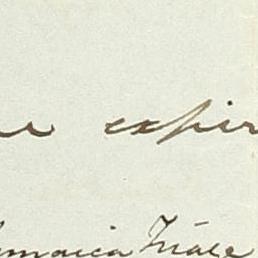 expir
amaica Trade